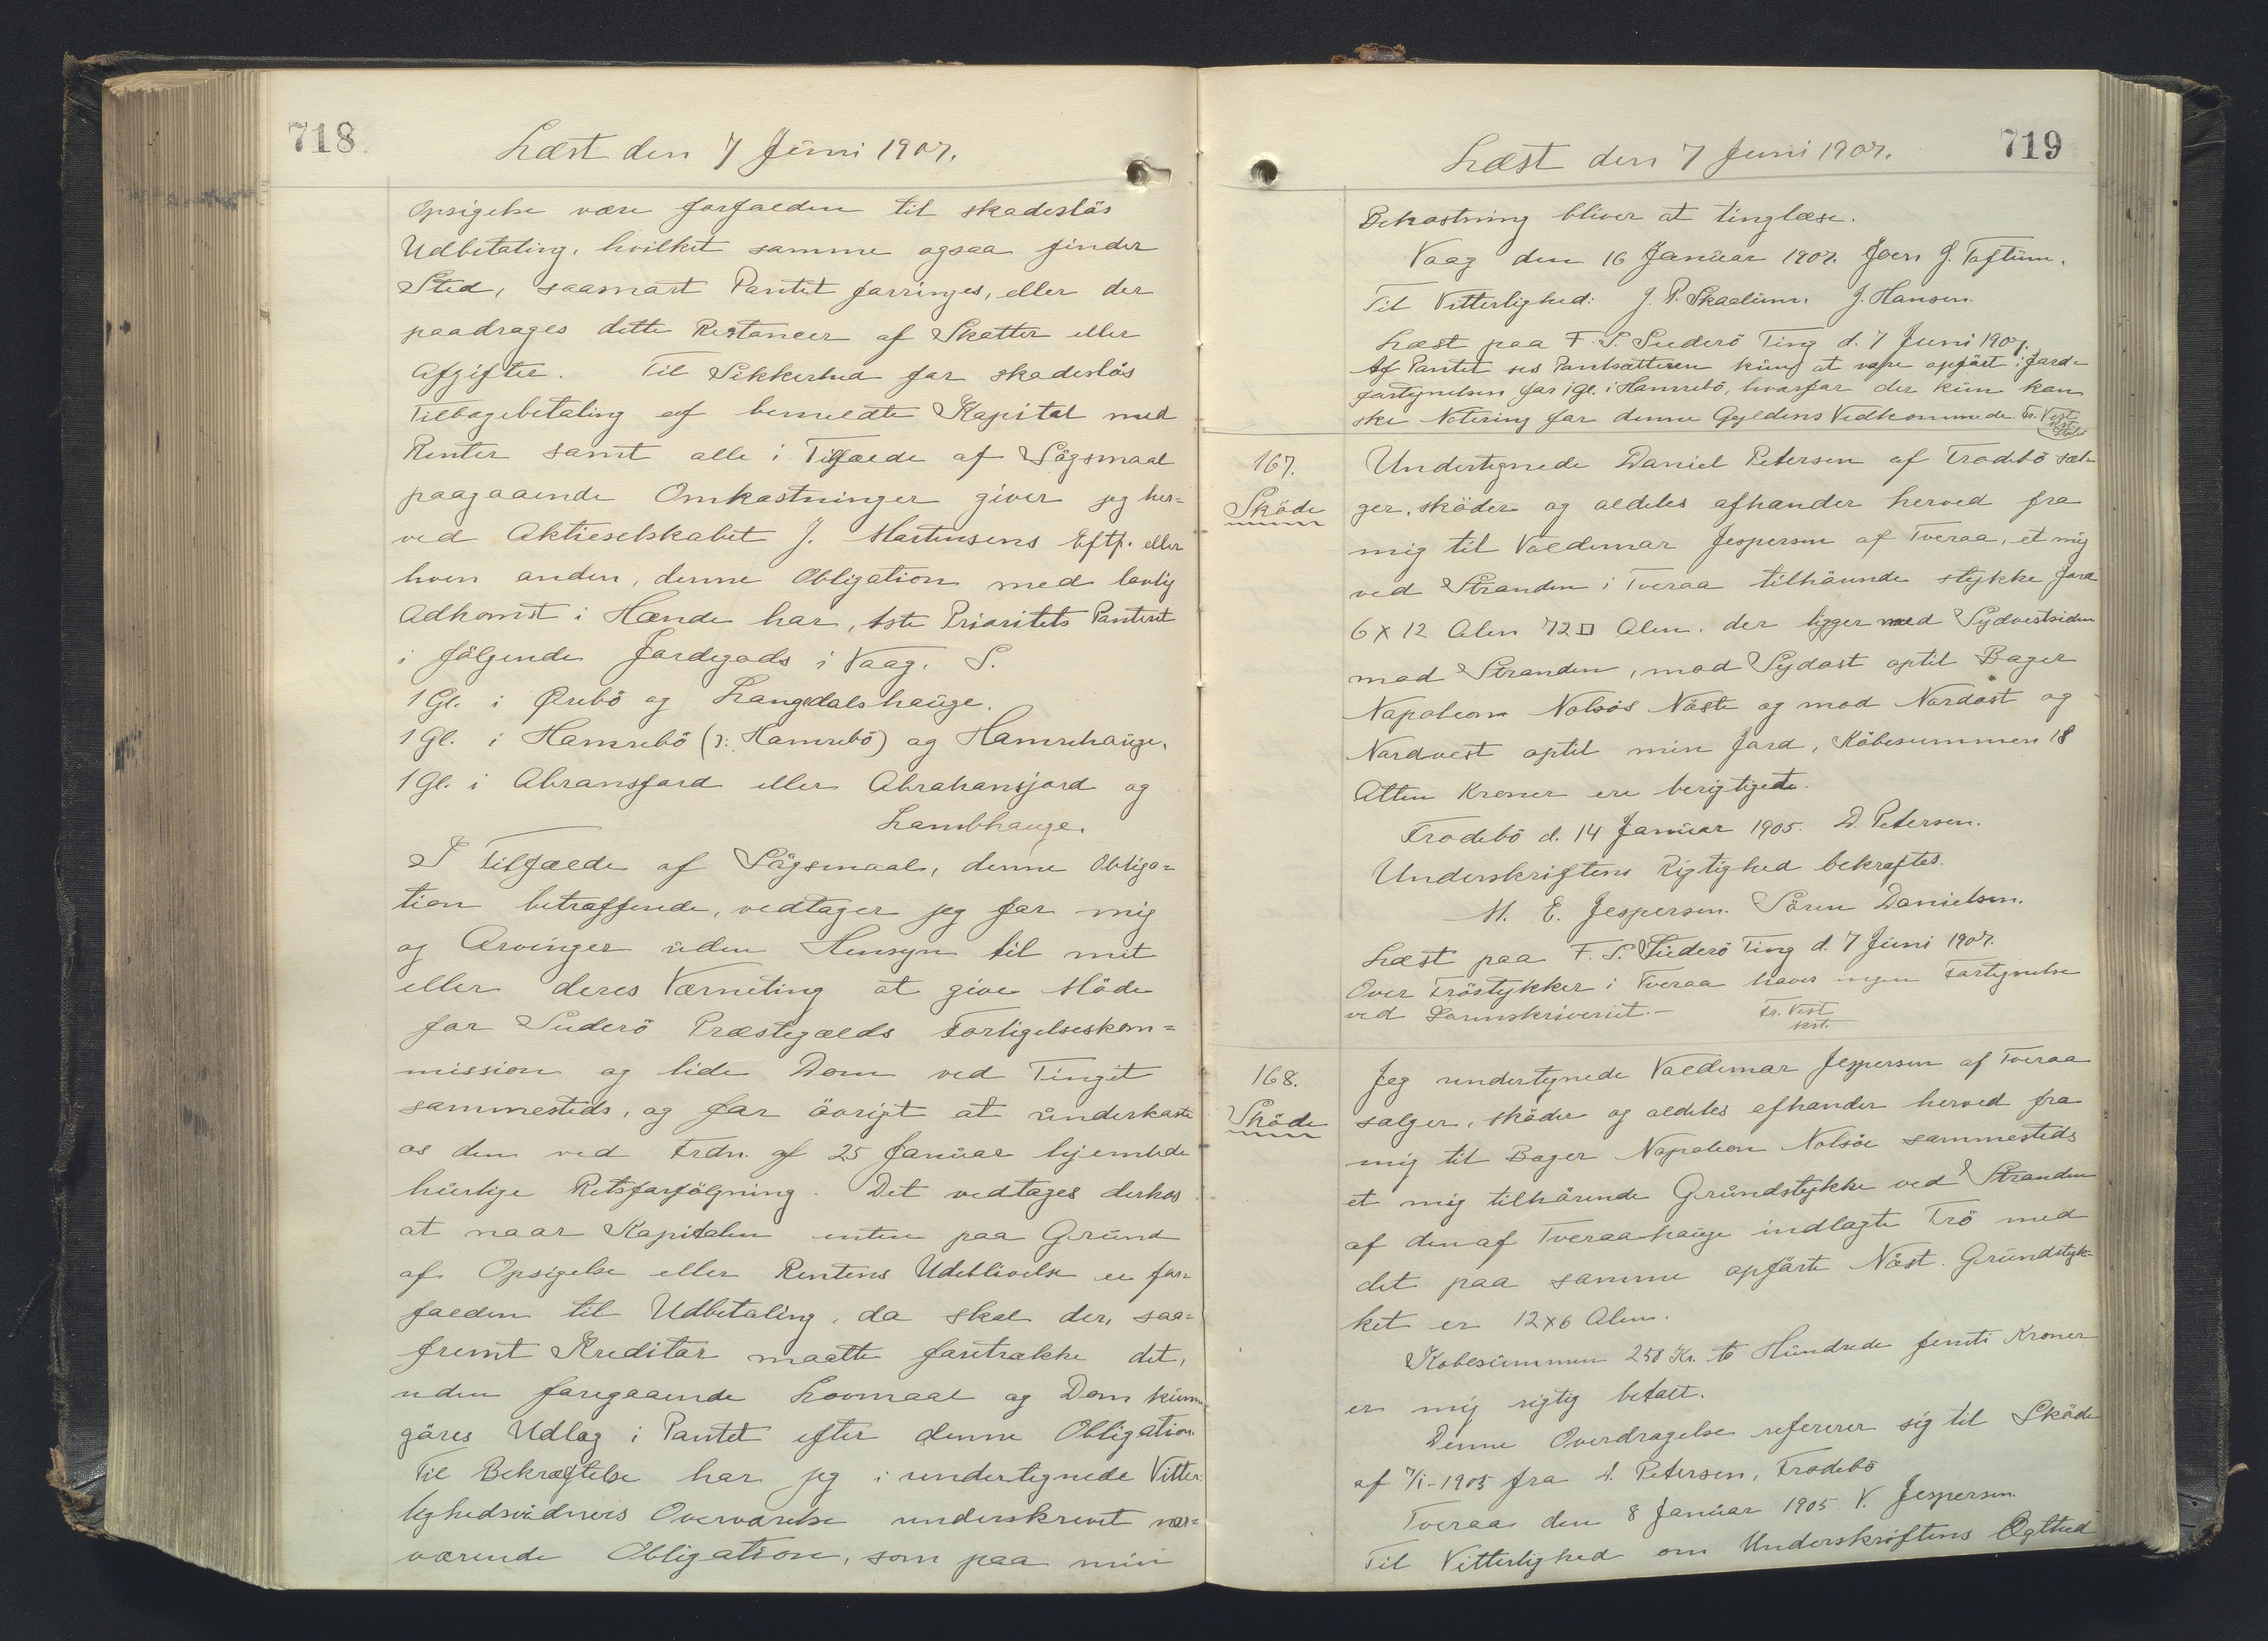 718
Læst den 7 Juni 1907.
Opsigelse være forfalden til skadeslös
Udbetaling, hvilket samme ogsaa finder
Sted, saasnart Pantet forringes, eller der
paadrages dette Restancer af Skatter eller
Afgifter. Til Sikkerhed for skadeslös
Tilbagebetaling af bemeldte Kapital med
Renter samt alle i Tilfælde af Sögsmaal
paagaaende Omkostninger giver jeg her=
ved Aktieselskabet J. Mortensens Eftf. eller
hvem anden, denne Obligation med lovlig
Adkomst i Hænde har, 1ste Prioritets Panteret
i fölgende Jordegods i Vaag. S.
1 Gl. i Ørebö og Langdalshauge.
1 Gl. i Hamrebö (ɔ: Hamrebö) og Hamrehauge.
1 Gl. i Abramsjord eller Abrahamsjord og
Lambhauge.
I Tilfælde af Sögsmaal, denne Obliga=
tion betræffende, vedtager jeg for mig
og Arvinger uden Hensyn til mit
eller deres Værneting at give Möde
for Suderö Præstegælds Forligelseskom=
mission og lide Dom ved Tinget
sammesteds, og for övrigt at underkaste
os den ved Frdn. af 25 Januar hjemlede
hurtige Retsforfölgning. Det vedtages derhos
at naar Kapitalen enten paa Grund
af Opsigelse eller Rentens Udeblivelse er for=
falden til Udbetaling, da skal der, saa=
fremt Kreditor maatte foretrække det,
uden foregaaende Lovmaal og Dom kunne
göres Udlæg i Pantet efter denne Obligation.
Til Bekræftelse har jeg i undertegnede Vitter=
lighedsvidners Overværelse underskrevet nær=
værende Obligation, som paa min
719
Læst den 7 Juni 1907.
Bekostning bliver at tinglæse.
Vaag den 16 Januar 1907. Joen J. Toftum.
Til Vitterlighed: J. P. Skaalum. J. Hansen.
Læst paa F. S. Suderö Ting d. 7 Juni 1907.
Af Pantet ses Pantsætteren kun at være opfört i Jord=
fortegnelsen for 1 Gl. i Hamrebö, hvorfor der kun kan
ske Notering for denne Gyldens Vedkommende. Fr. Vest
kst.
167.
Sköde
Undertegnede Daniel Petersen af Frodebö sæl=
ger, sköder og aldeles afhænder herved fra
mig til Valdemar Jespersen af Tveraa, et mig
ved Stranden i Tveraa tilhörende stykke Jord
6 x 12 Alen 72 □ Alen. der ligger med Sydvestsiden
mod Stranden, mod Sydost optil Bager
Napoleon Nolsös Nöste og mod Nordost og
Nordvest optil min Jord, Köbesummen 18
Atten Kroner ere berigtigede.
Frodebö d. 14 Januar 1905. D. Petersen.
Underskriftens Rigtighed bekræftes.
M. E. Jespersen. Sören Danielsen.
Læst paa F. S. Suderö Ting d. 7 Juni 1907.
Over Tröstykker i Tveraa haves ingen Fortegnelse
ved Sorenskriveriet. - Fr. Vest
kst.
168.
Sköde
Jeg undertegnede Valdemar Jespersen af Tveraa
sælger, sköder og aldeles afhænder herved fra
mig til Bager Napoleon Nolsöe sammesteds
et mig tilhörende Grundstykke ved Stranden
af den af Tveraahauge indlagte Trö med
det paa samme opförte Nöst. Grundstyk=
ket er 12 x 6 Alen.
Köbesummen 250 Kr. to Hundrede femti Kroner
er mig rigtig betalt.
Denne Overdragelse refererer sig til Sköde
af 7/1-1905 fra D. Petersen, Frodebö
Tveraa den 8 Januar 1905. V. Jespersen.
Til Vitterlighed om Underskriftens Ægthed